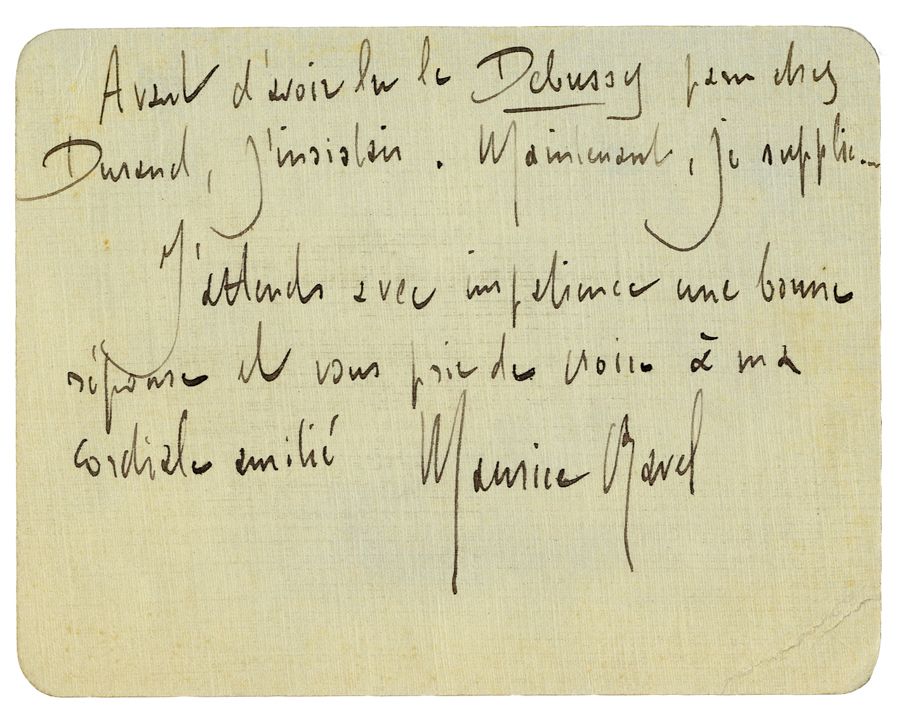 Avant d'avoir lu le Debussy paru chez
Durand, j'insistais. Maintenant, je supplie...
J'attends avec impatience une bonne
réponse et vous prie de croire à ma
cordiale amitié Maurice Ravel